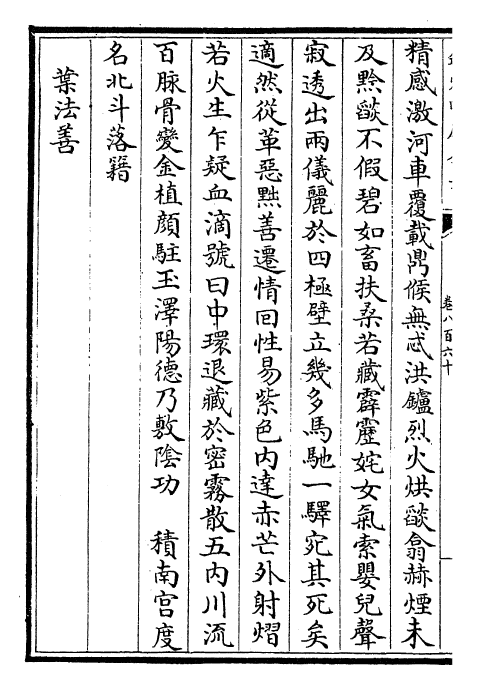 精感激河車覆載鼎候無忒洪鑪烈火烘燄翕赫煙未
及黔燄不假碧如畜扶桑若藏霹靂姹女氣索嬰兒聲
寂透出兩儀麗於四極壁立幾多馬馳一驛宛其死矣
適然從革惡黜善遷情回性易紫色内達赤芒外射熠
若火生乍疑血滴號曰中環退藏於密霧散五内川流
百脉骨變金植顔駐玉澤陽德乃敷陰功　積南宫度
名北斗落籍
葉法善
卷八百六十